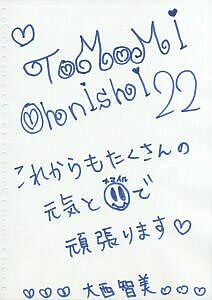 ToMoMi
Ohnishi 22
これからもたくさんの
スマイル
元気と で
頑張ります♡
♡♡♡ 大西智美 ♡♡♡